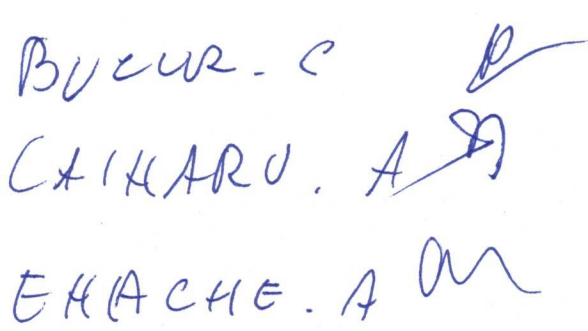 BUCUR. C
CAIHARU. A
EHACHE. A